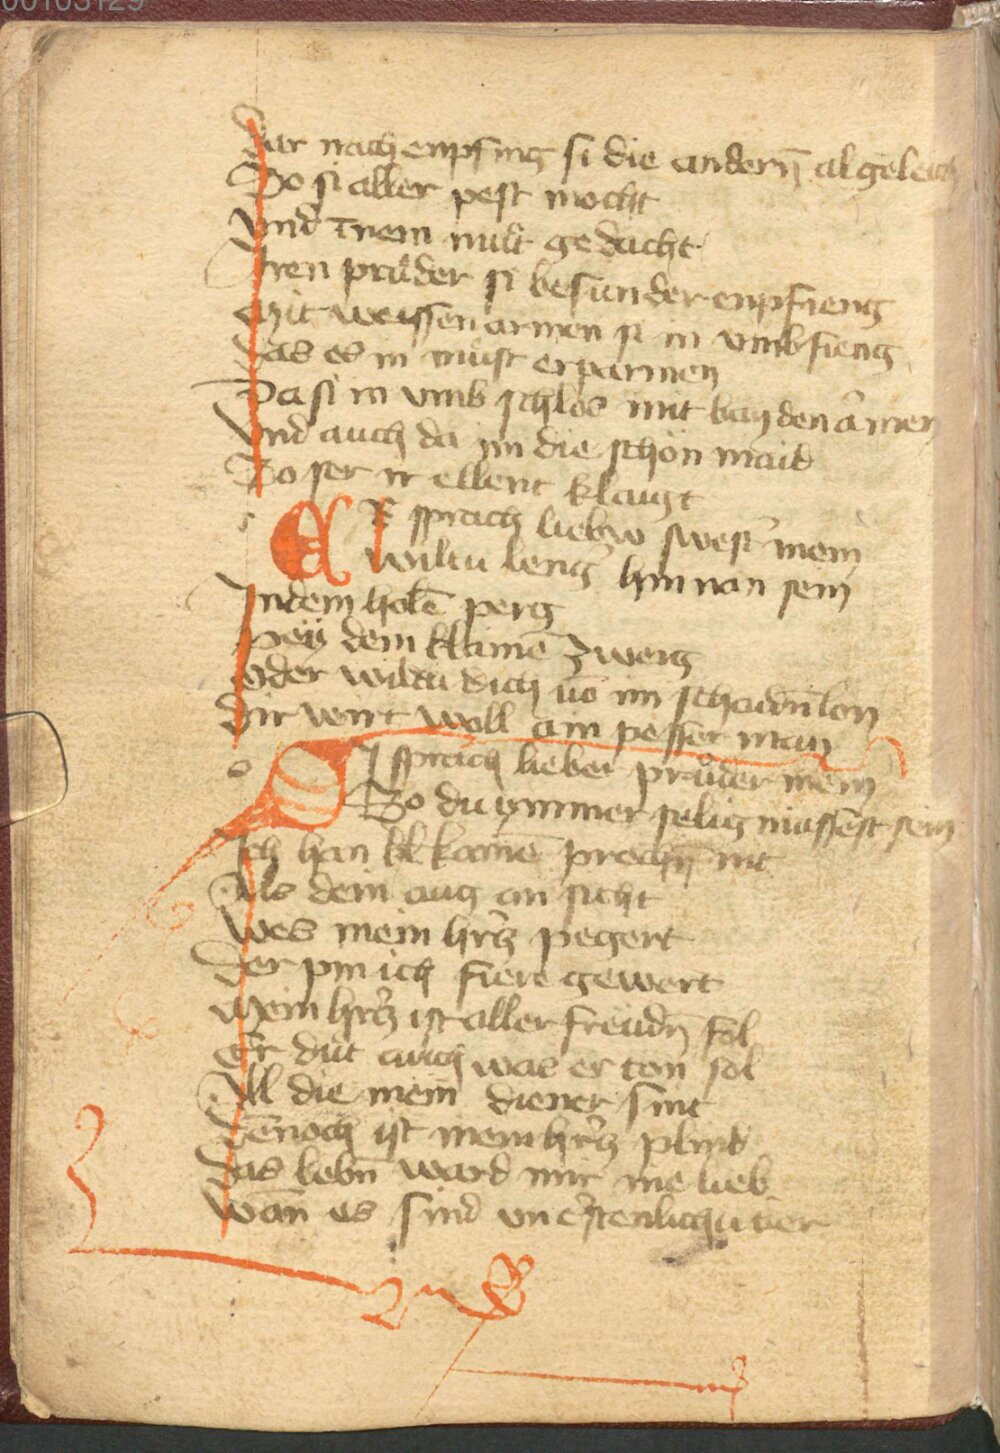 00103129
Dar nach enpfing si die andern̄ al geleich
So si aller pest mocht
Vnd in irem mut gedacht
Iren průder si besunder enpfieng
Mit weissen armen si in vmbfieng
Das es in můst erparmen
Da si in vmb schlos mit bayden armen
Vnd auch da im die schön maid
So ser ir ellent klagt
ER sprach liebw swest' mein
Wiltu leng hin nan sein
In dem holē perg
Pey dem klainē zwerg
Oder wildu dich vō im schaidn̄ lon
Dir wirt woll ain pesser man
SI sprach lieber průder mein
So du ymmer selig müssest sein
Ich han kl kainē prechn̄ nit
Als dein aug an sicht
Wes mein hr'cz pegert
Der pin ich fiere gewert
Mein hr'cz ist aller freudn̄ fol
Er dut auch was er ton sol
All die mein diener sint
Dēnoch ist mein hr'cz plind
Das lebn̄ ward mir nie lieb
Wān es sind vncristenlich tier